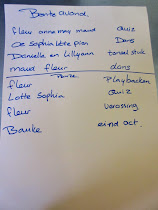 Bonte avond.
fleur anne may maud quiz
Oe sophia lotte pien Dans
Danielle en Lillyann toneel stuk
maud fleur dans
Pauze
fleur Playbacken
Lotte Sophia Quiz
fleur verassing
Bauke eind act.